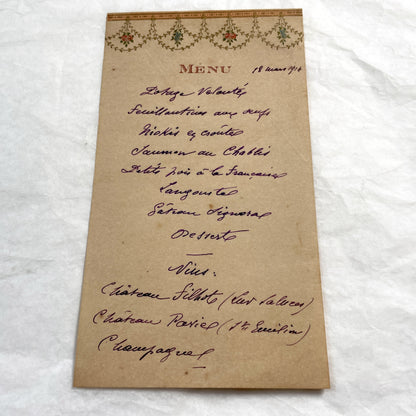 MENU
18 mars 1914
Potage Velouté
Feuillantines aux œufs
Niokis en croûte
Saumon au Chablis
Petits pois à la Française
Langouste
Gâteau Signoral
Desserts
Vins:
Château Filhot (Lur Saluces)
Château Pavie (St Emilion)
Champagne